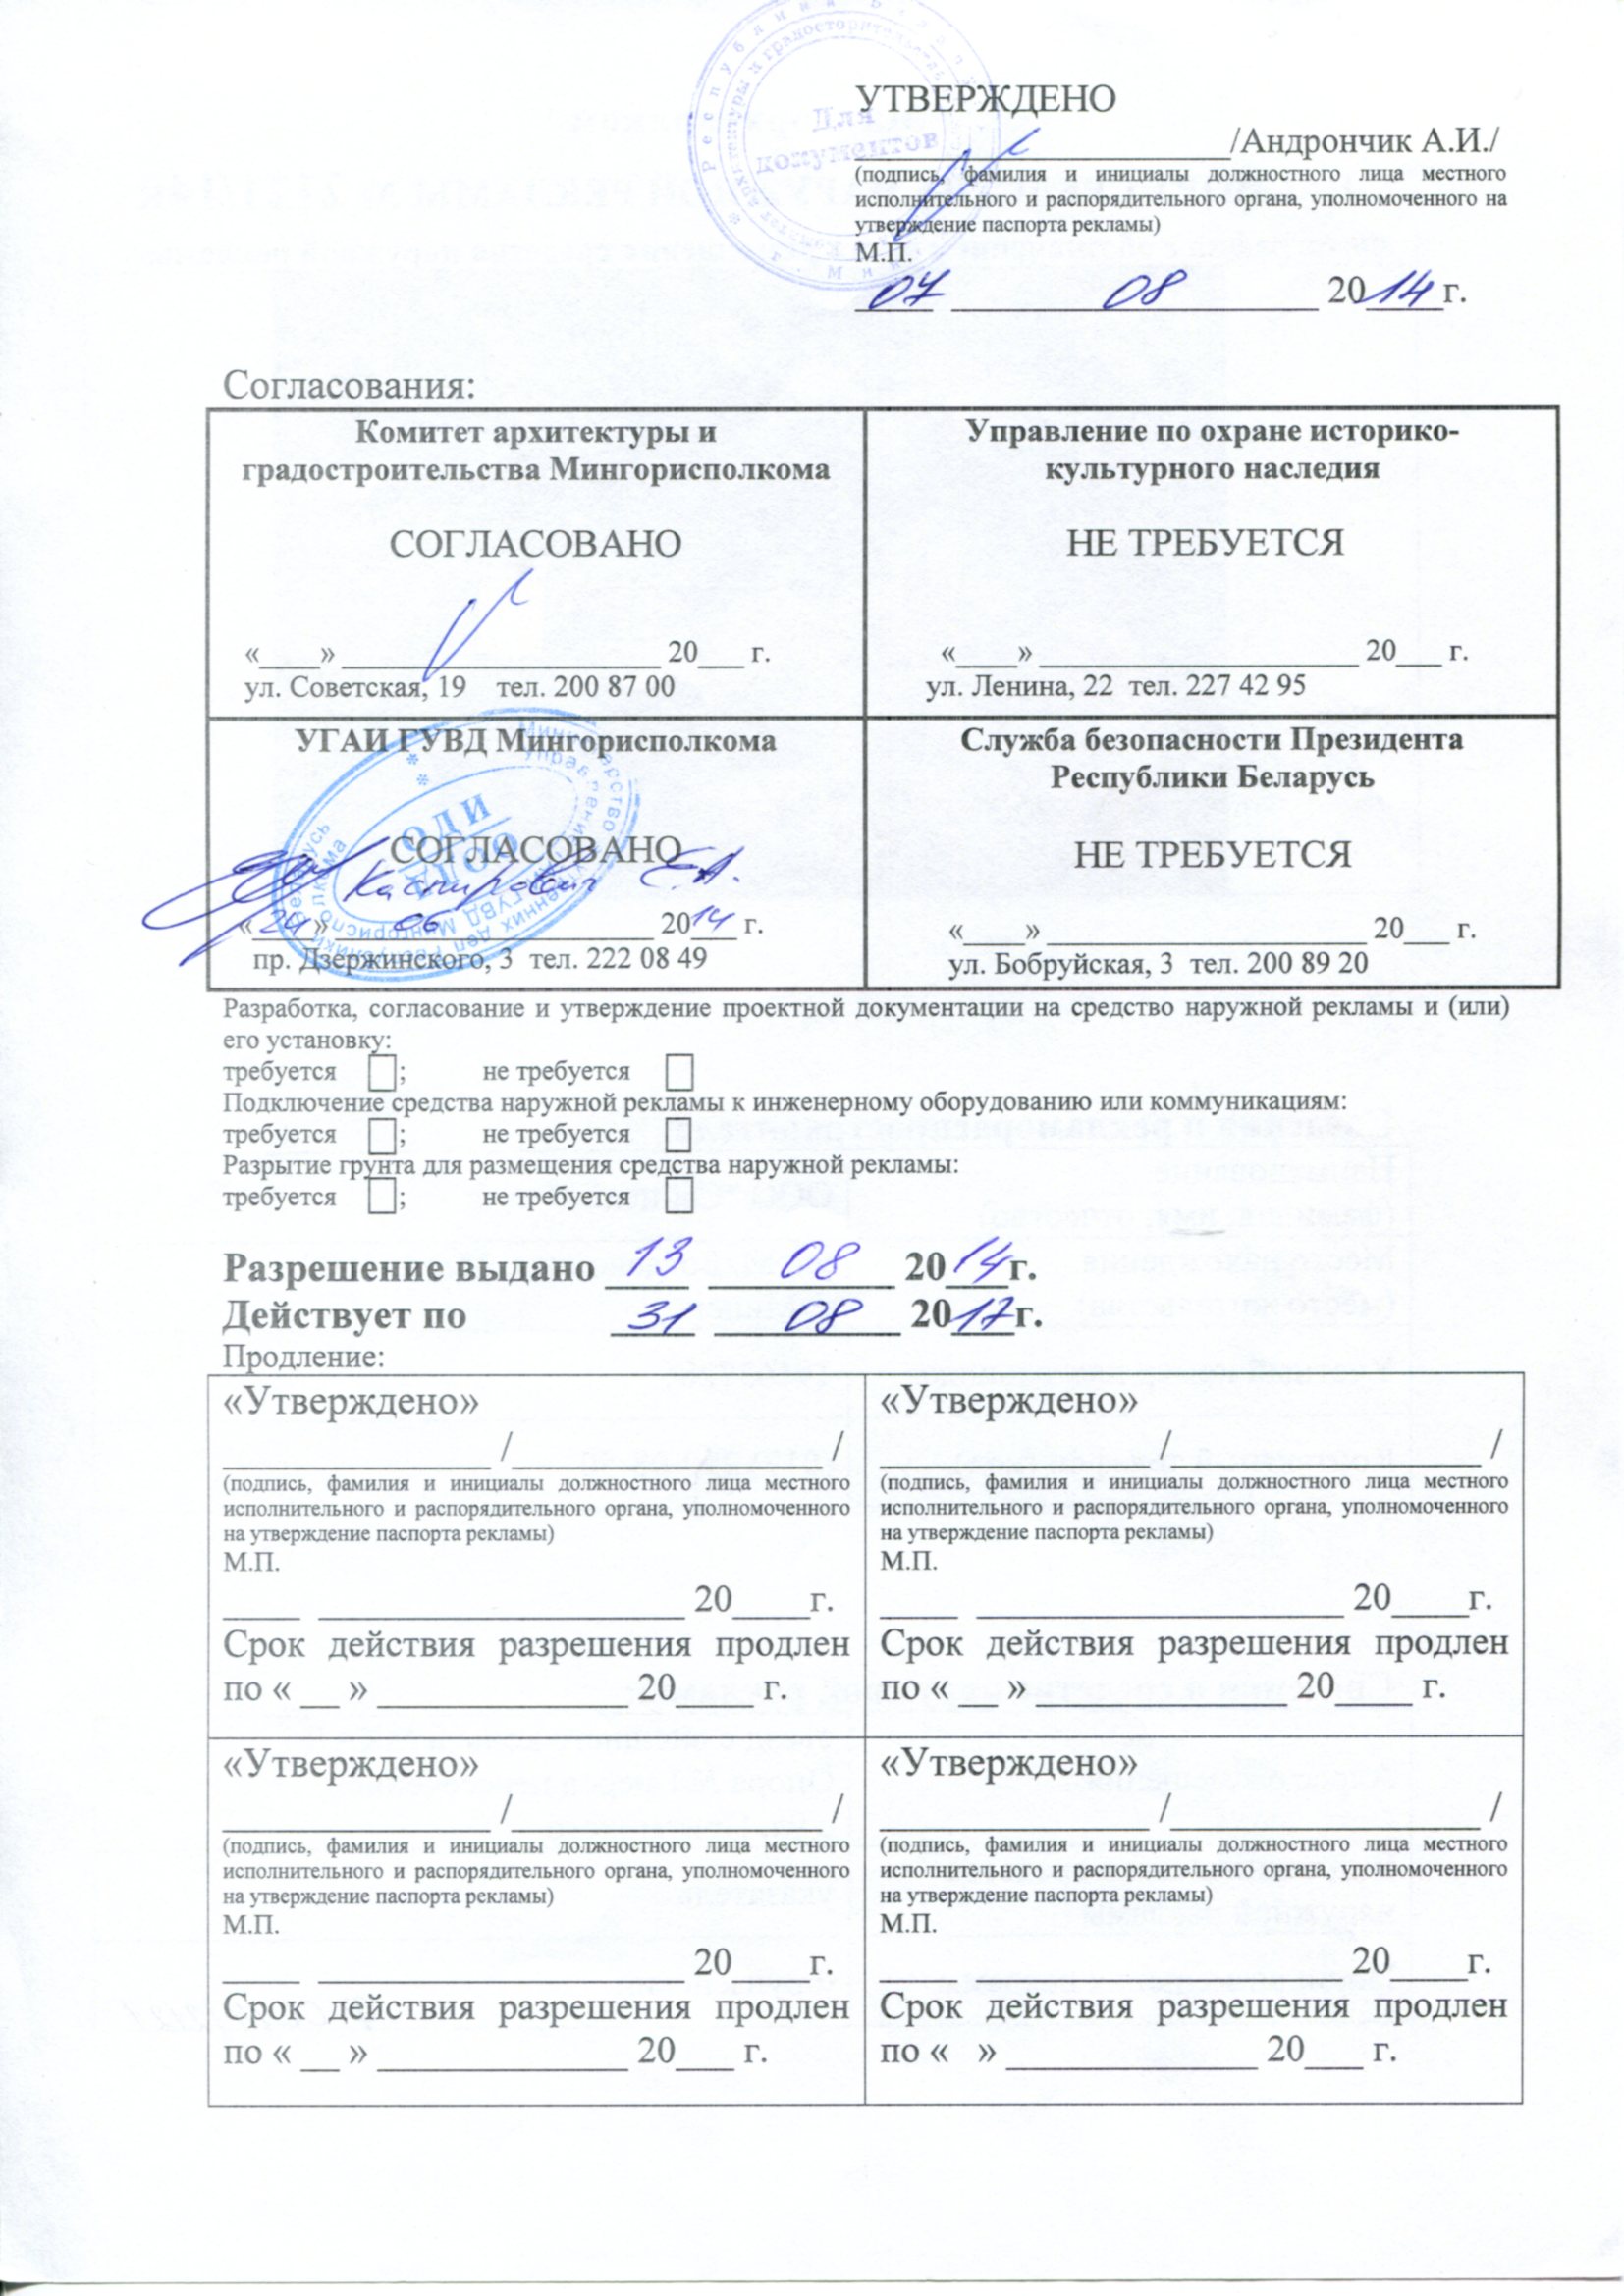 УТВЕРЖДЕНО
Для
документов
____________________/Андрончик А.И./
(подпись, фамилия и инициалы должностного лица местного
исполнительного и распорядительного органа, уполномоченного на
утверждение паспорта рекламы)
М.П.
07 08 2014г.
Согласования:
Комитет архитектуры и
градостроительства Мингорисполкома
СОГЛАСОВАНО
«____» ____________________ 20___ г.
ул. Советская, 19 тел. 200 87 00
Управление по охране историко-
культурного наследия
НЕ ТРЕБУЕТСЯ
«____» ____________________ 20___ г.
ул. Ленина, 22 тел. 227 42 95
УГАИ ГУВД Мингорисполкома
ОДИ
СОГЛАСОВАНО
Каспирович Е.А.
«24» 06 2014 г.
пр. Дзержинского, 3 тел. 222 08 49
Служба безопасности Президента
Республики Беларусь
НЕ ТРЕБУЕТСЯ
«____» ____________________ 20___ г.
ул. Бобруйская, 3 тел. 200 89 20
Разработка, согласование и утверждение проектной документации на средство наружной рекламы и (или)
его установку:
требуется ; не требуется
Подключение средства наружной рекламы к инженерному оборудованию или коммуникациям:
требуется ; не требуется
Разрытие грунта для размещения средства наружной рекламы:
требуется ; не требуется
Разрешение выдано 13 08 2014г.
Действует по 31 08 2017г.
Продление:
«Утверждено»
______________ /________________ /
(подпись, фамилия и инициалы должностного лица местного
исполнительного и распорядительного органа, уполномоченного
на утверждение паспорта рекламы)
М.П.
____ ___________________ 20____г.
Срок действия разрешения продлен
по « __ » _____________ 20____ г.
«Утверждено»
______________ /________________ /
(подпись, фамилия и инициалы должностного лица местного
исполнительного и распорядительного органа, уполномоченного
на утверждение паспорта рекламы)
М.П.
____ ___________________ 20____г.
Срок действия разрешения продлен
по « __ » _____________ 20____ г.
«Утверждено»
______________ /________________ /
(подпись, фамилия и инициалы должностного лица местного
исполнительного и распорядительного органа, уполномоченного
на утверждение паспорта рекламы)
М.П.
____ ___________________ 20____г.
Срок действия разрешения продлен
по « __ » _____________ 20___ г.
«Утверждено»
______________ /________________ /
(подпись, фамилия и инициалы должностного лица местного
исполнительного и распорядительного органа, уполномоченного
на утверждение паспорта рекламы)
М.П.
____ ___________________ 20____г.
Срок действия разрешения продлен
по « » _____________ 20___ г.